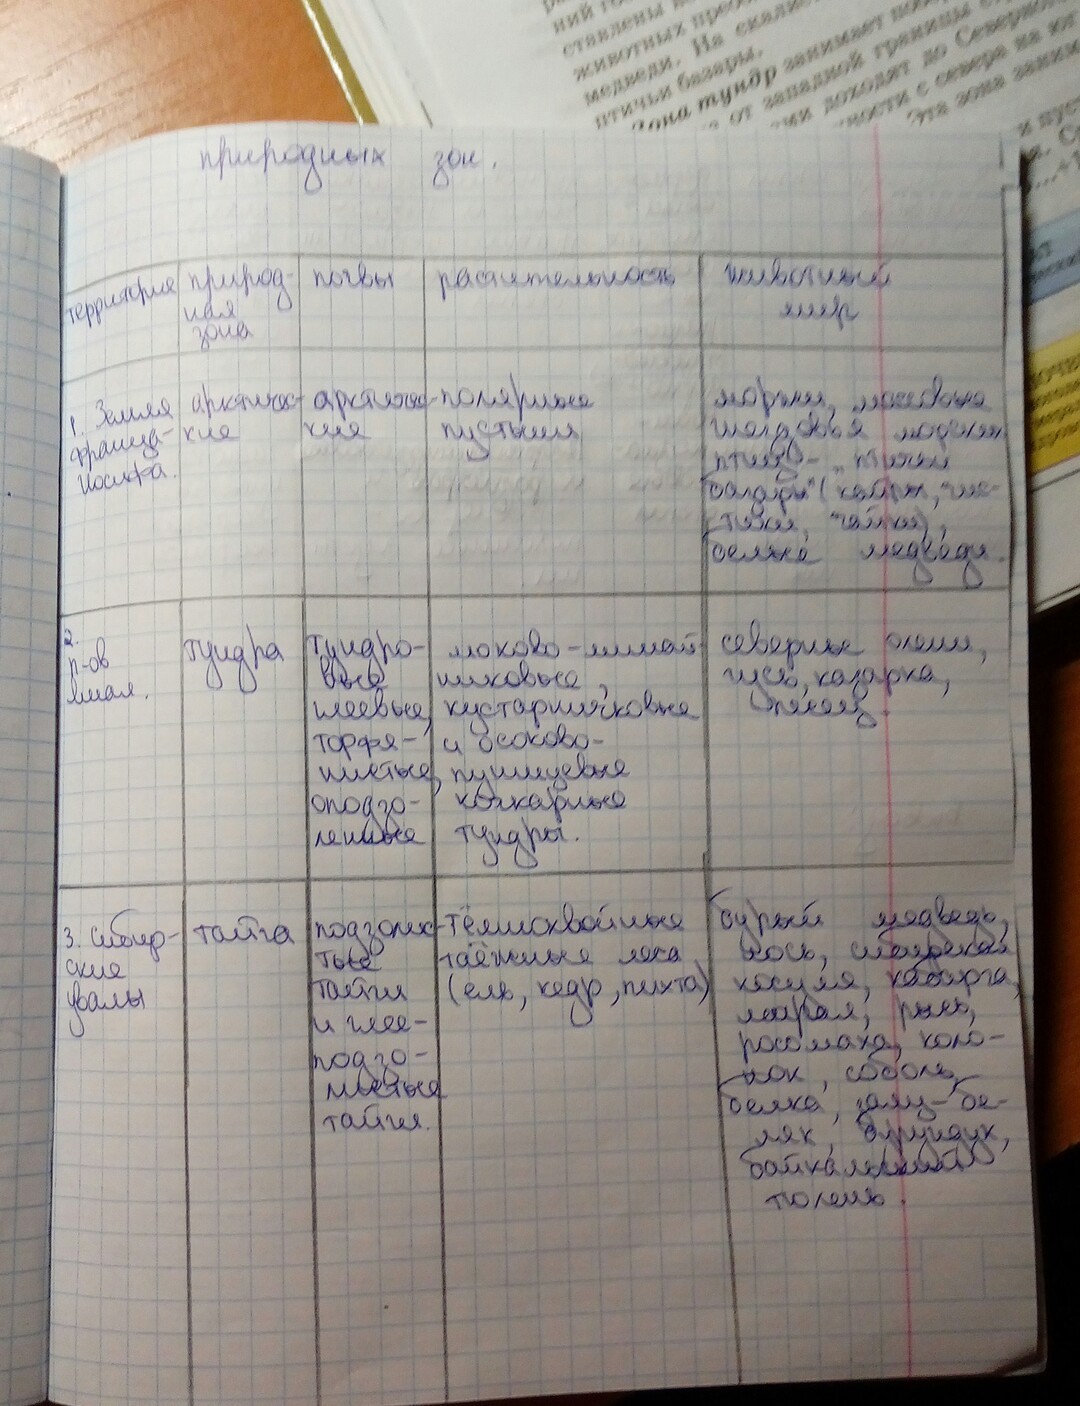 ставлены
животных
медведи. На скалис
птичьи базары.
Зона тундр занимает
от западной границы
доходят до Северног
с севера на юг
Эта зона заним
природных зон.
территория
природ-
ная
зона
почвы
растительность
животный
мир
1. Земля
Франца-
Иосифа.
арктичес-
кие
арктичес-
кие
полярные
пустыни
моржи, массовые
гнездовья морских
птиц- "птичьи
базары" (кайры, чис-
тики, чайки),
белые медведи.
2.
п-ов
Ямал.
тундра
тундро-
вые
глеевые,
торфя-
нистые,
оподзо-
ленные
мохово-лишай
никовые,
кустарничковые
и осоково-
пушицевые
кочкарные
тундры.
северные олени,
гусь, казарка,
песец.
3. Сибир-
ские
увалы
тайга
подзолис-
тые
тайги
и глее-
подзо-
листые
тайги.
тёмнохвойные
таёжные леса
(ель, кедр, пихта)
бурый медведь,
лось, сибирская
косуля, кабарга,
марал, рысь,
росомаха, коло-
нок, соболь,
белка, заяц-бе-
ляк, бурундук,
байкальский
тюлень.